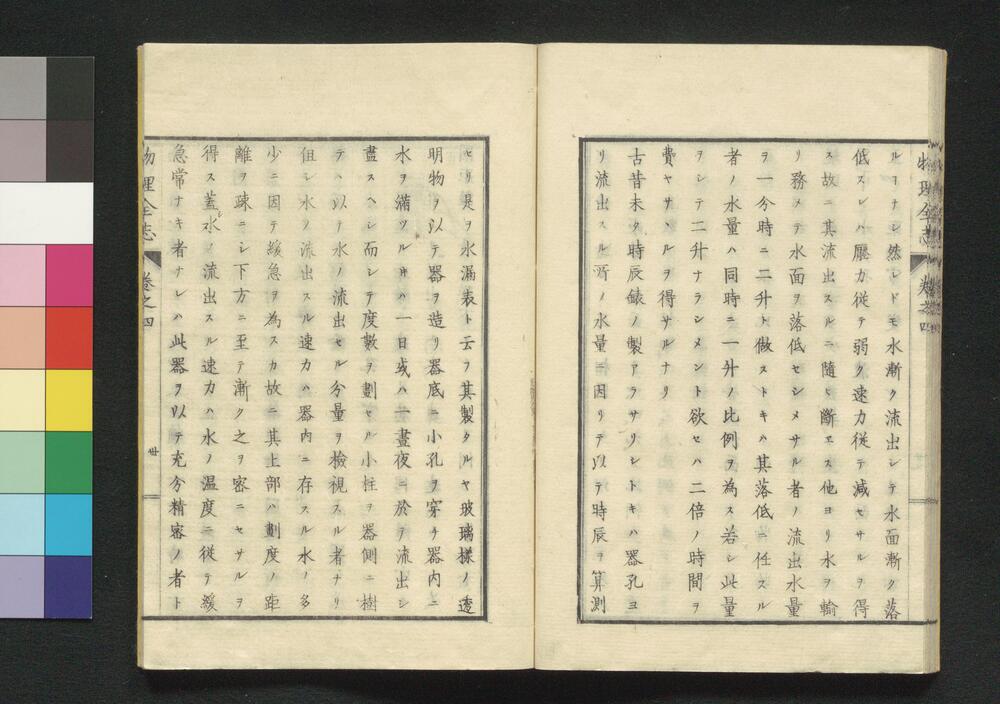 物理全志 卷之四
ルヿナシ然レドモ水漸ク流出シテ水面漸ク落
低スレハ壓力從テ弱ク速力從テ減セサルヲ得
ス故ニ其流出スルニ隨ヒ斷エス他ヨリ水ヲ輸
リ務メテ水面ヲ落低セシメサル者ノ流出水量
ヲ一今時ニ二升ト做ストキハ其落低ニ任スル
者ノ水量ハ同時ニ一升ノ比例ヲ為ス若シ此量
ヲシテ二升ナラシメント欲セハ二倍ノ時間ヲ
費ヤサヽルヲ得サルナリ
古昔未タ時辰錶ノ製アラサリシトキハ器孔ヨ
リ流出スル所ノ水量ニ因リテ以テ時辰ヲ算測
セリ是ヲ水漏表ト云フ其製タルヤ玻璃樣ノ透
明物ヲ以テ器ヲ造リ器底ニ小孔ヲ穿チ器内ニ
水ヲ滿ツルキハ一日或ハ一晝夜ニ於テ流出シ
盡スヘシ而シテ度數ヲ劃セル小柱ヲ器側ニ樹
テハ以テ水ノ流出セル分量ヲ檢視スル者ナリ
但シ水ノ流出スル速力ハ器内ニ存スル水ノ多
少ニ因テ緩急ヲ為スカ故ニ其上部ハ劃度ノ距
離ヲ疎ニシ下方ニ至テ漸ク之ヲ密ニセサルヲ
得ス蓋シ水ノ流出スル速力ハ水ノ温度ニ從テ緩
急常ナキ者ナレハ此器ヲ以テ充分精密ノ者ト
物理全志 卷之四 丗